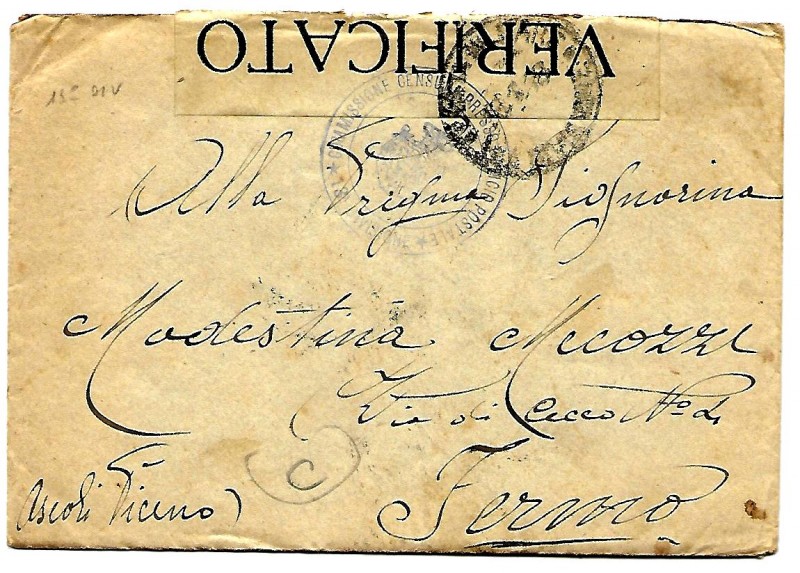 VERIFICATO
13ª DIV
COMMISSIONE CENSURA PRESSO UFFICIO POSTALE
Alla Pregma Signorina
Modestina Mecozzi
Via di Cecco No 2
C
Fermo
(Ascoli Piceno)